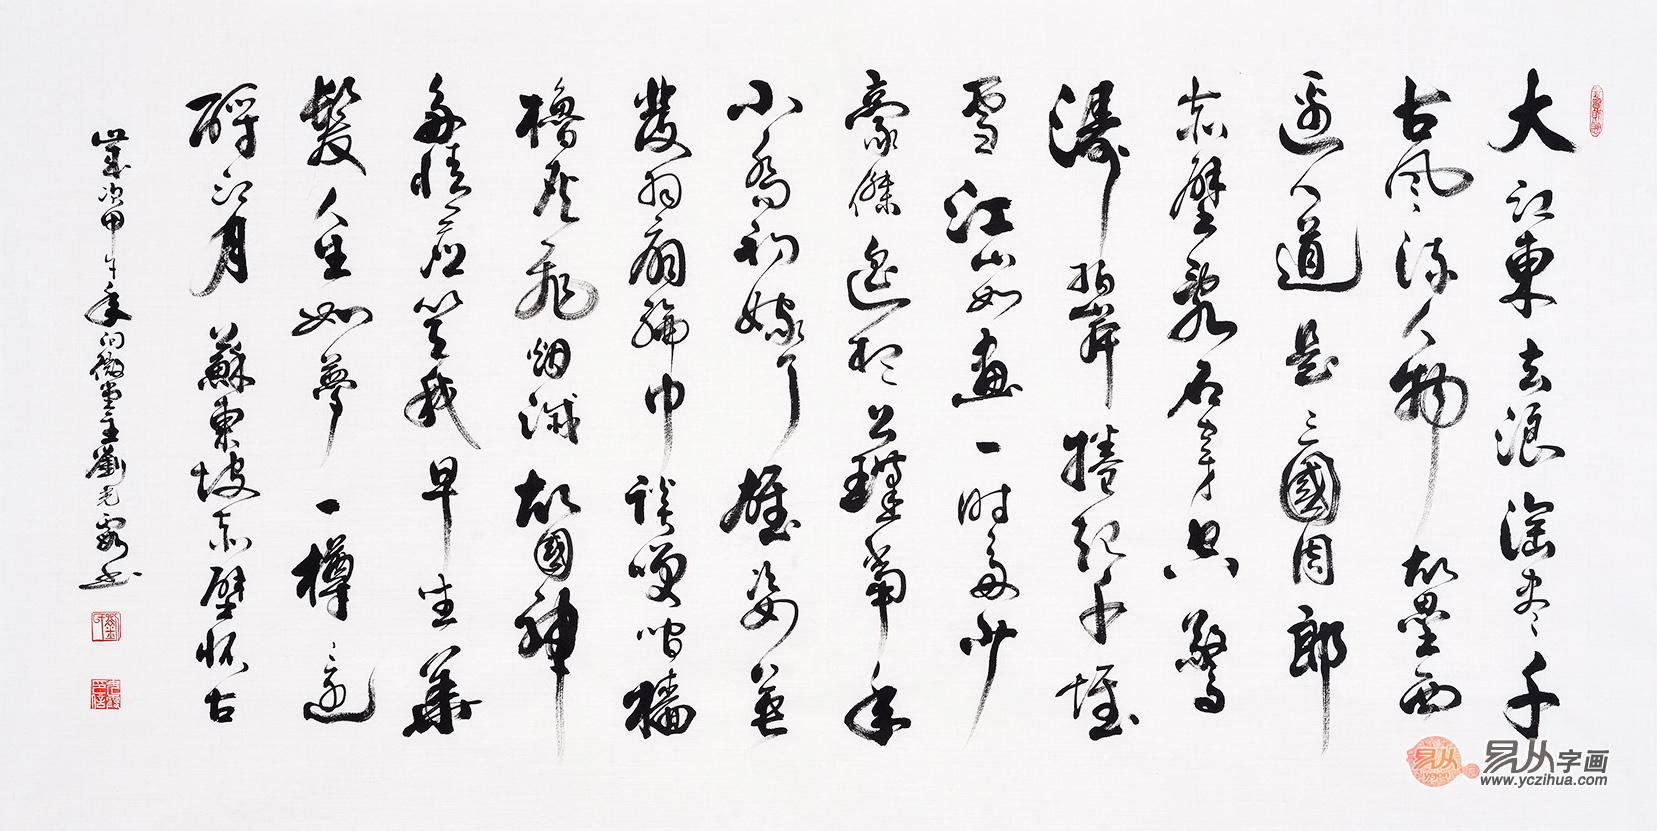 大江東去浪淘盡千
古風流人物故壘西
邊人道是三國周郎
赤壁亂石穿空驚
濤拍岸捲起千堆
雪江山如畫一時多少
豪傑遙想公瑾當年
小喬初嫁了雄姿英
發羽扇綸巾談笑間檣
櫓灰飛烟滅故國神
多情應笑我早生華
髮人生如夢一樽還
酹江月 蘇東坡赤壁懷古
歲次甲午年問微堂主劉光霞書
易从
yczihua.com
易从字画
www.yczihua.com